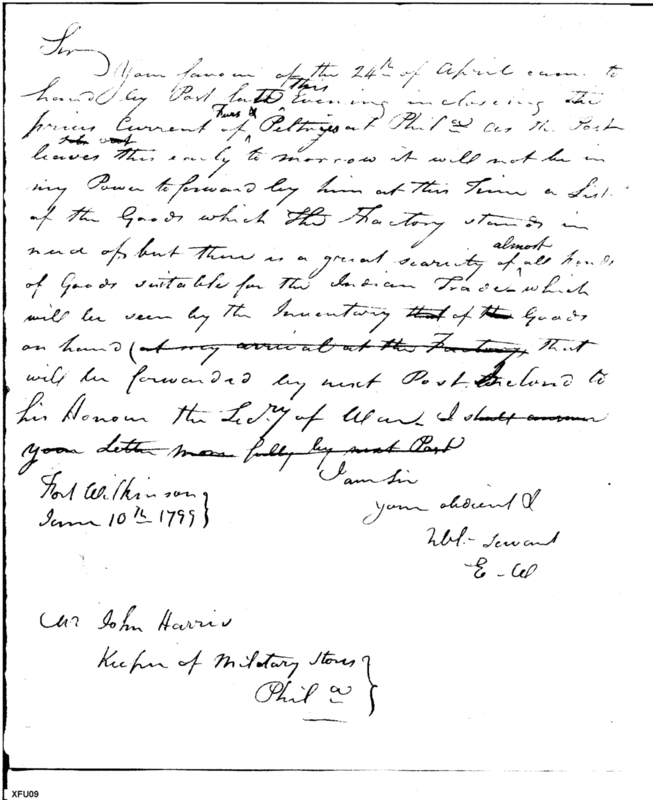 Sir
Your favour of the 24th of April came to
hand by Post late this Evening inclosing the
prices Current of Furs & Peltries at Phila as the Post
leaves this early to morrow it will not be in
my Power to forward by him at this Time a List
of the Goods which the Factory stands in
need of, but there is a great scarcity of almost all kinds
of Goods suitable for the Indian Trade which
will be seen by the Inventory that of the Goods
on hand (at my arrival at the Factory, that
will be forwarded by next Post Inclosd to
his Honour the Secry of War - I shall answer
your Letter more fully by next Post
I am Sir
your obedient &
Hbl. Servant
E - W
Fort Wilkinson
June 10th 1799
Mr John Harris
Keeper of Military Stores
Phila
XFU09